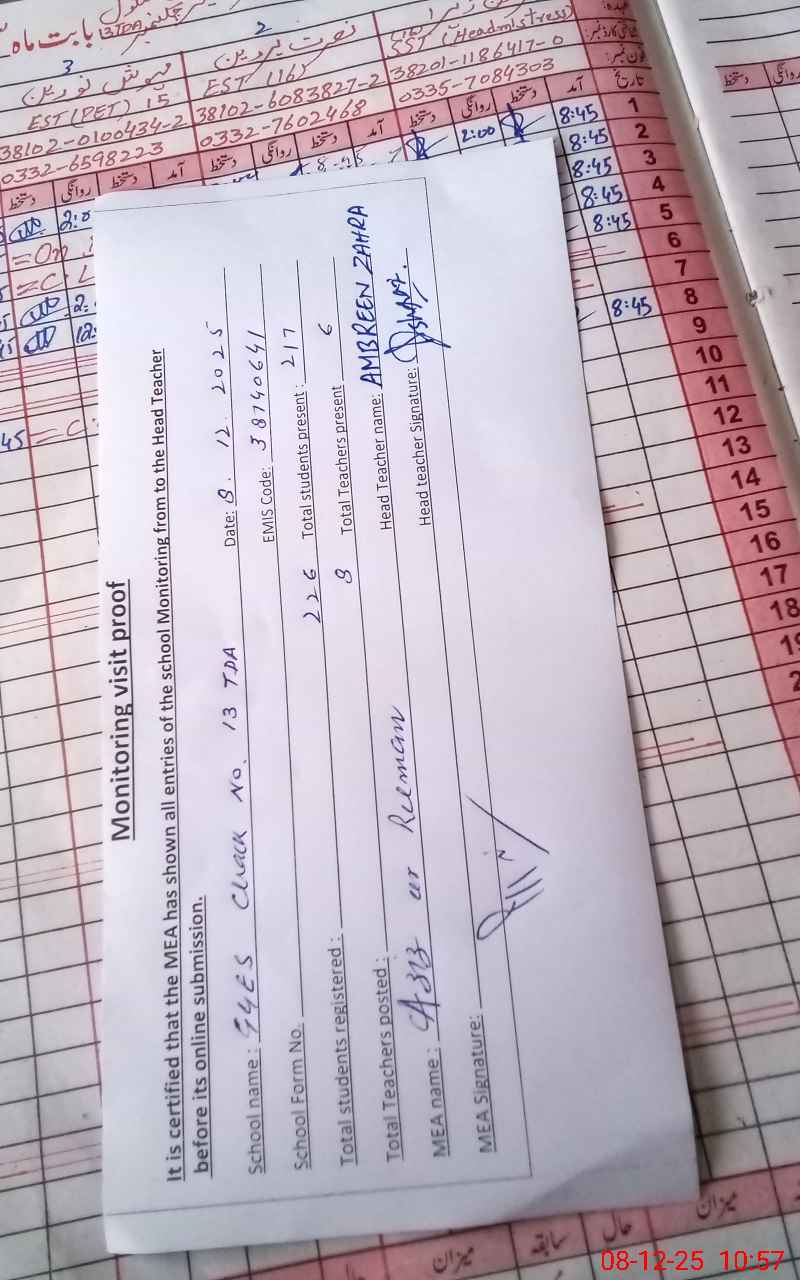 بابت ماہ
13TDA
3
2
نصرت پروین
مہوش نورین
EST (PET) 15
EST 1165
SST (Headmistress)
38102-0100434-2
38102-6083827-2
38201-1186417-0
0332-6598223
0332-7602468
0335-7084303
عہدہ:
فون نمبر:
تاریخ
آمد
دستخط
روانگی
دستخط
آمد
دستخط
روانگی
دستخط
آمد
دستخط
روانگی
دستخط
دستخط
روانگی
1 8:45
2:00
2 8:45
3 8:45
4 8:45
5 8:45
6
7
8 8:45
9
10
11
12
13
14
15
16
17
18
Monitoring visit proof
It is certified that the MEA has shown all entries of the school Monitoring from to the Head Teacher
before its online submission.
School name : GGES Chack No. 13 TDA Date: 8. 12. 2025
School Form No. EMIS Code: 38740641
Total students registered : 226 Total students present : 217
Total Teachers posted : 8 Total Teachers present 6
MEA name : Aziz ur Rehman Head Teacher name: AMBREEN ZAHRA
MEA Signature: Head teacher Signature:
میزان
سابقہ
حال
میزان
08-12-25 10:57